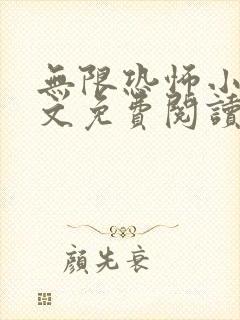 無限恐怖小
文免費閱讀
顏先衰